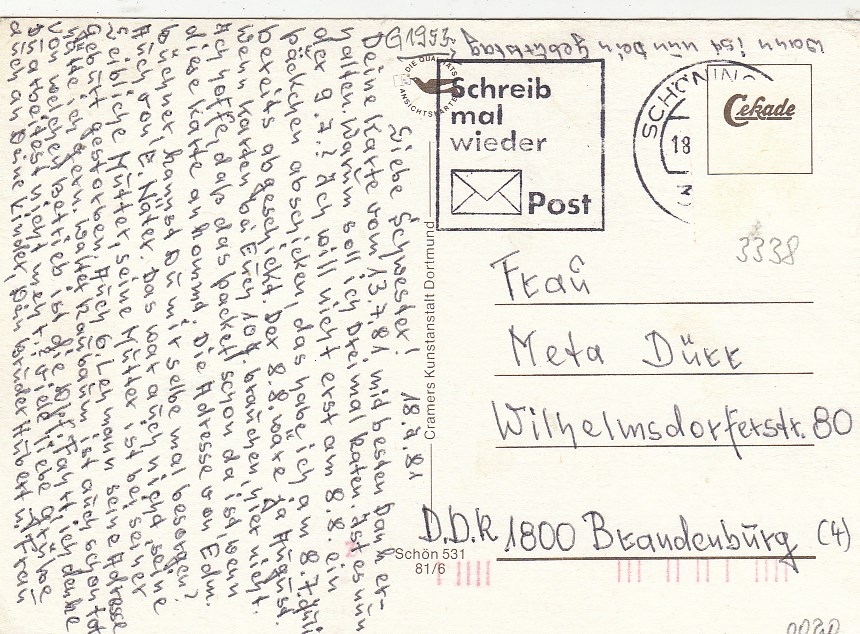 wann ist nun Dein geburtstag
G1953
Liebe Schwester! 18.7.81
Deine Karte vom 13.7.81 mid besten Dank er-
halten. Warum soll ich Dreimal Raten. Ist es nun
der 9.7.? Ich will nicht erst am 8.8. ein
päckchen abschicken, das habe ich am 8.7. Juli
bereits abgeschickt. Der 8.8. wäre ja August.
wenn Karten bei Euch 10 t. brauchen, hier nicht.
Ich hoffe, daß das packet schon da ist, wenn
diese Karte ankommt. Die Adresse von Edm.
büchner, kannst Du mir selbe mal besorgen?
Auch von E. Näter. Das war auch nicht seine
Leibliche Mutter, seine Mutter ist bei seiner
Geburt gestorben. Auch b Lehmann seine Adresse
hätte ich gern. walter Raubaum ist auch schon tot
von welchen betrieb ist die Fahrt ich denke
Du arbeitest nicht mehr. viele liebe grüße
auch an Deine Kinder, Dein bruder Hubert u. Frau
DIE QUALITÄTS
ANSICHTSKARTE
Schreib
mal
wieder
Post
SCHÖNING
18
Cekade
3338
Frau
Meta Dürr
Wilhelmsdorferstr. 80
D.D.R 1800 Brandenburg (4)
Cramers Kunstanstalt Dortmund
Schön 531
81/6